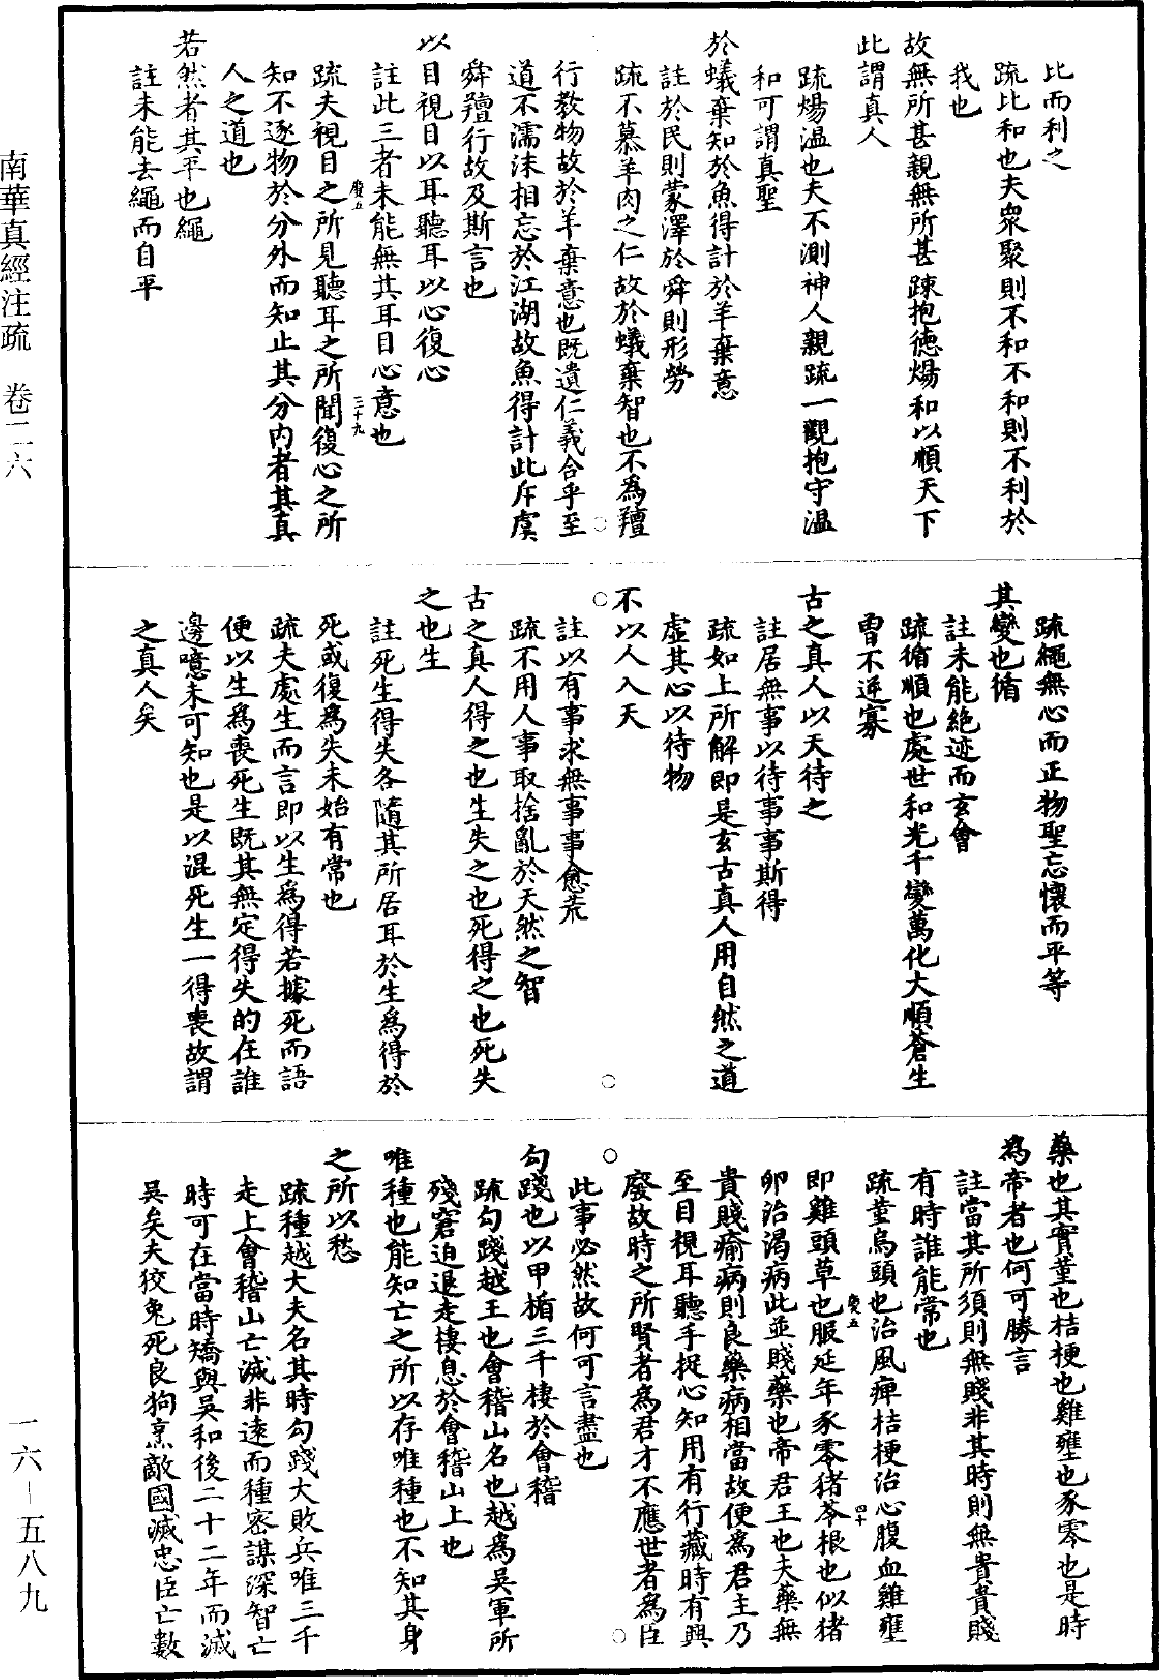 比而利之
疏比和也夫衆聚則不和不和則不利於
我也
故無所甚親無所甚踈抱德煬和以順天下
此謂真人
疏煬温也夫不測神人親疏一觀抱守温
和可謂真聖
於蟻棄知於魚得計於羊棄意
註於民則蒙澤於舜則形勞
疏不慕羊肉之仁故於蟻棄智也不為羶
行教物故於羊棄意也既遺仁義合乎至
道不濡沫相忘於江湖故魚得計此斥虞
舜羶行故及斯言也
以目視目以耳聽耳以心復心
註此三者未能無其耳目心意也
疏夫視目之所見聽耳之所聞復心之所
知不逐物於分外而知止其分内者其真
人之道也
若然者其平也繩
註未能去繩而自平
疏繩無心而正物聖忘懷而平等
其變也循
註未能絶迹而玄會
疏循順也處世和光千變萬化大順蒼生
曽不逆寡
古之真人以天待之
註居無事以待事事斯得
疏如上所解即是玄古真人用自然之道
虚其心以待物
不以人入天
註以有事求無事事愈荒
疏不用人事取捨亂於天然之智
古之真人得之也生失之也死得之也死失
之也生
註死生得失各隨其所居耳於生為得於
死或復為失未始有常也
疏夫處生而言即以生為得若據死而語
便以生為喪死生既其無定得失的在誰
邊噫未可知也是以混死生一得喪故謂
之真人矣
藥也其實堇也桔梗也雞壅也豕零也是時
為帝者也何可勝言
註當其所須則無賤非其時則無貴貴賤
有時誰能常也
疏堇烏頭也治風痺桔梗治心腹血雞壅
即雞頭草也服延年豕零猪苓根也似猪
卵治渴病此並賤藥也帝君王也夫藥無
貴賤瘉病則良藥病相當故便為君主乃
至目視耳聽手捉心知用有行藏時有興
廢故時之所賢者為君才不應世者為臣
此事必然故何可言盡也
勾踐也以甲楯三千棲於會稽
疏勾踐越王也會稽山名也越為吳軍所
殘窘迫退走棲息於會稽山上也
唯種也能知亡之所以存唯種也不知其身
之所以愁
疏種越大夫名其時勾踐大敗兵唯三千
走上會稽山亡滅非逺而種密謀深智亡
時可在當時矯與吳和後二十二年而滅
吳矣夫狡兔死良狗烹敵國滅忠臣亡數
南華真經注疏 卷二六
一六—五八九